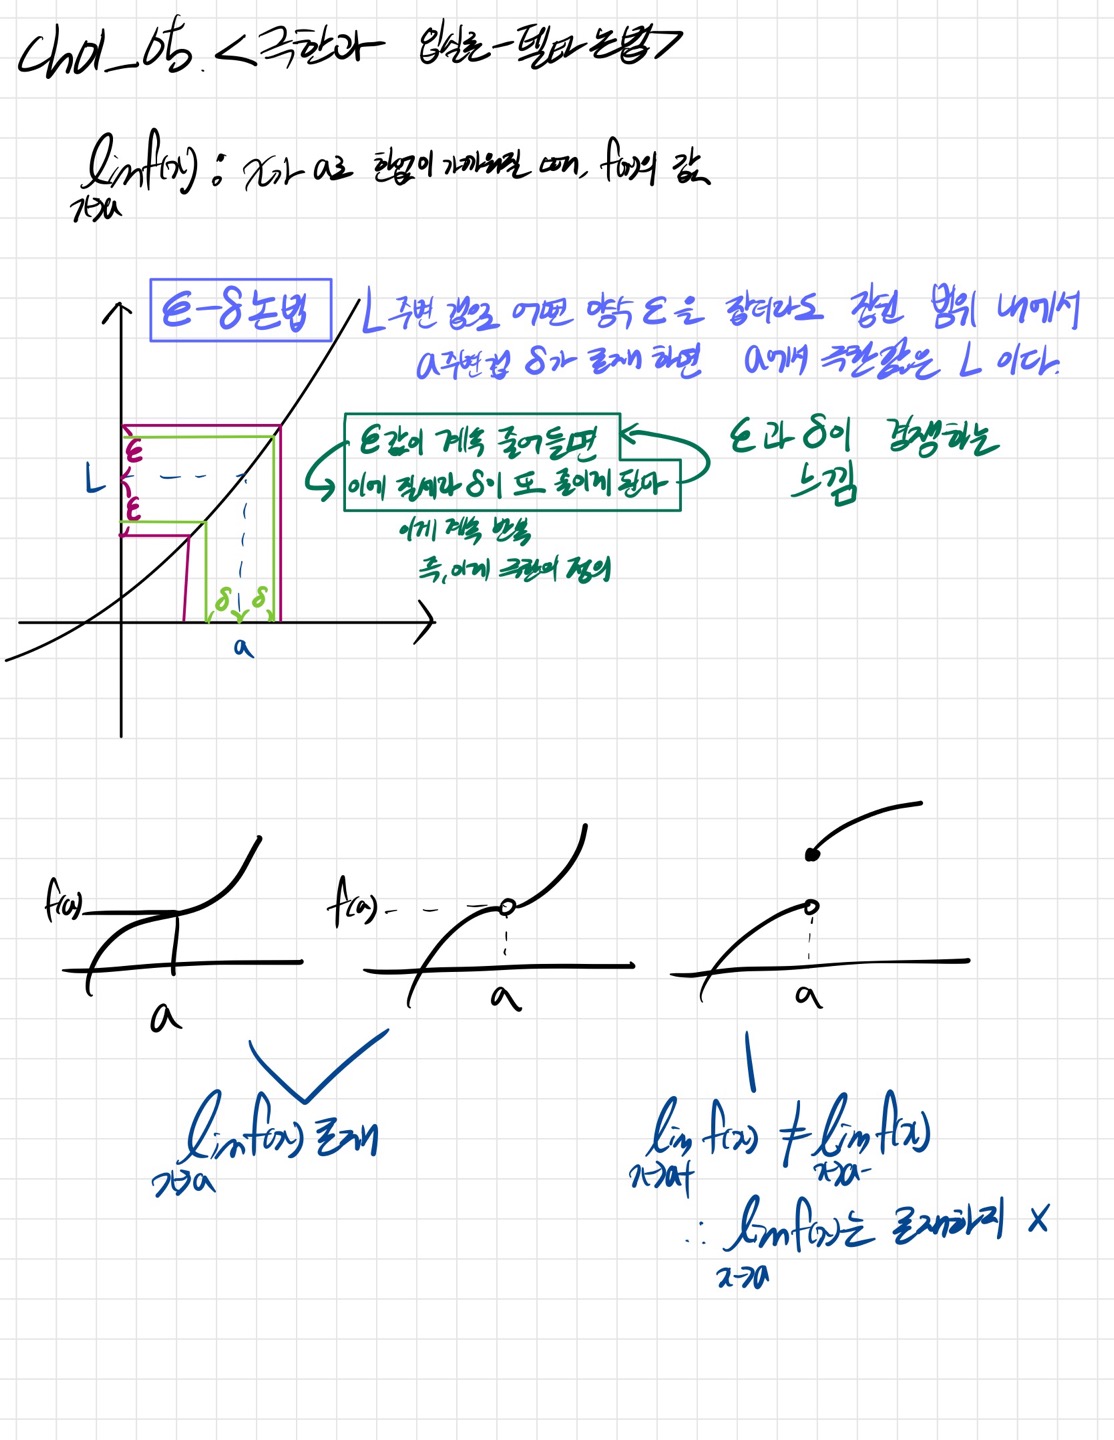 Ch01_05. <극한과 입실론-델타 논법>
lim f(x) : x가 a로 한없이 가까워질 때, f(x)의 값
x→a
ε-δ논법
L 주변 값으로 어떤 양수 ε을 잡더라도 잡힌 범위 내에서
a주변값 δ가 존재 하면 a에서 극한값은 L 이다.
ε값이 계속 줄어들면
이에 질세라 δ이 또 줄이게 된다
이게 계속 반복
즉, 이게 극한의 정의
ε과 δ이 경쟁하는
느낌
L
ε
ε
δ δ
a
f(a)
a
f(a)
a
a
lim f(x) 존재
x→a
lim f(x) ≠ lim f(x)
x→a+ x→a-
∴ lim f(x)는 존재하지 X
x→a